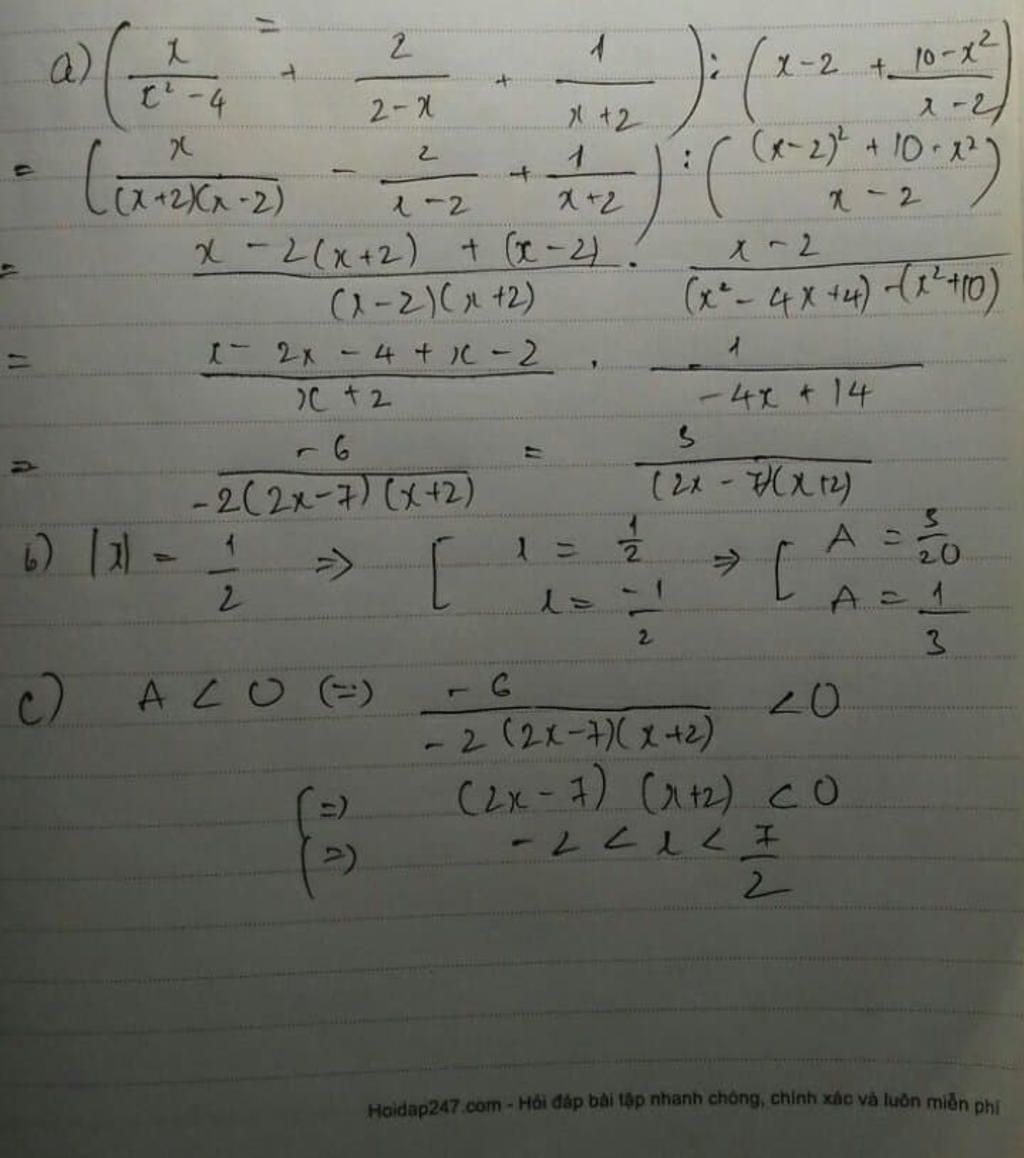 a) (x/(x² - 4) + 2/(2-x) + 1/(x+2)) : (x-2 + (10-x²)/(x-2))
= (x/((x+2)(x-2)) - 2/(x-2) + 1/(x+2)) : (((x-2)² + 10 - x²)/(x-2))
= (x - 2(x+2) + (x-2))/((x-2)(x+2)) . (x-2)/((x² - 4x+4) -(x²+10))
= (x - 2x - 4 + x - 2)/(x+2) . 1/(-4x + 14)
= -6/(-2(2x-7)(x+2)) = 3/((2x-7)(x+2))
b) |x| = 1/2 => [ x = 1/2 x = -1/2 => [ A = 3/20 A = 1/3
c) A < 0 (=) -6/(-2(2x-7)(x+2)) < 0
(=) (2x-7) (x+2) < 0
(=) -2 < x < 7/2
Hoidap247.com - Hỏi đáp bài tập nhanh chóng, chính xác và luôn miễn phí